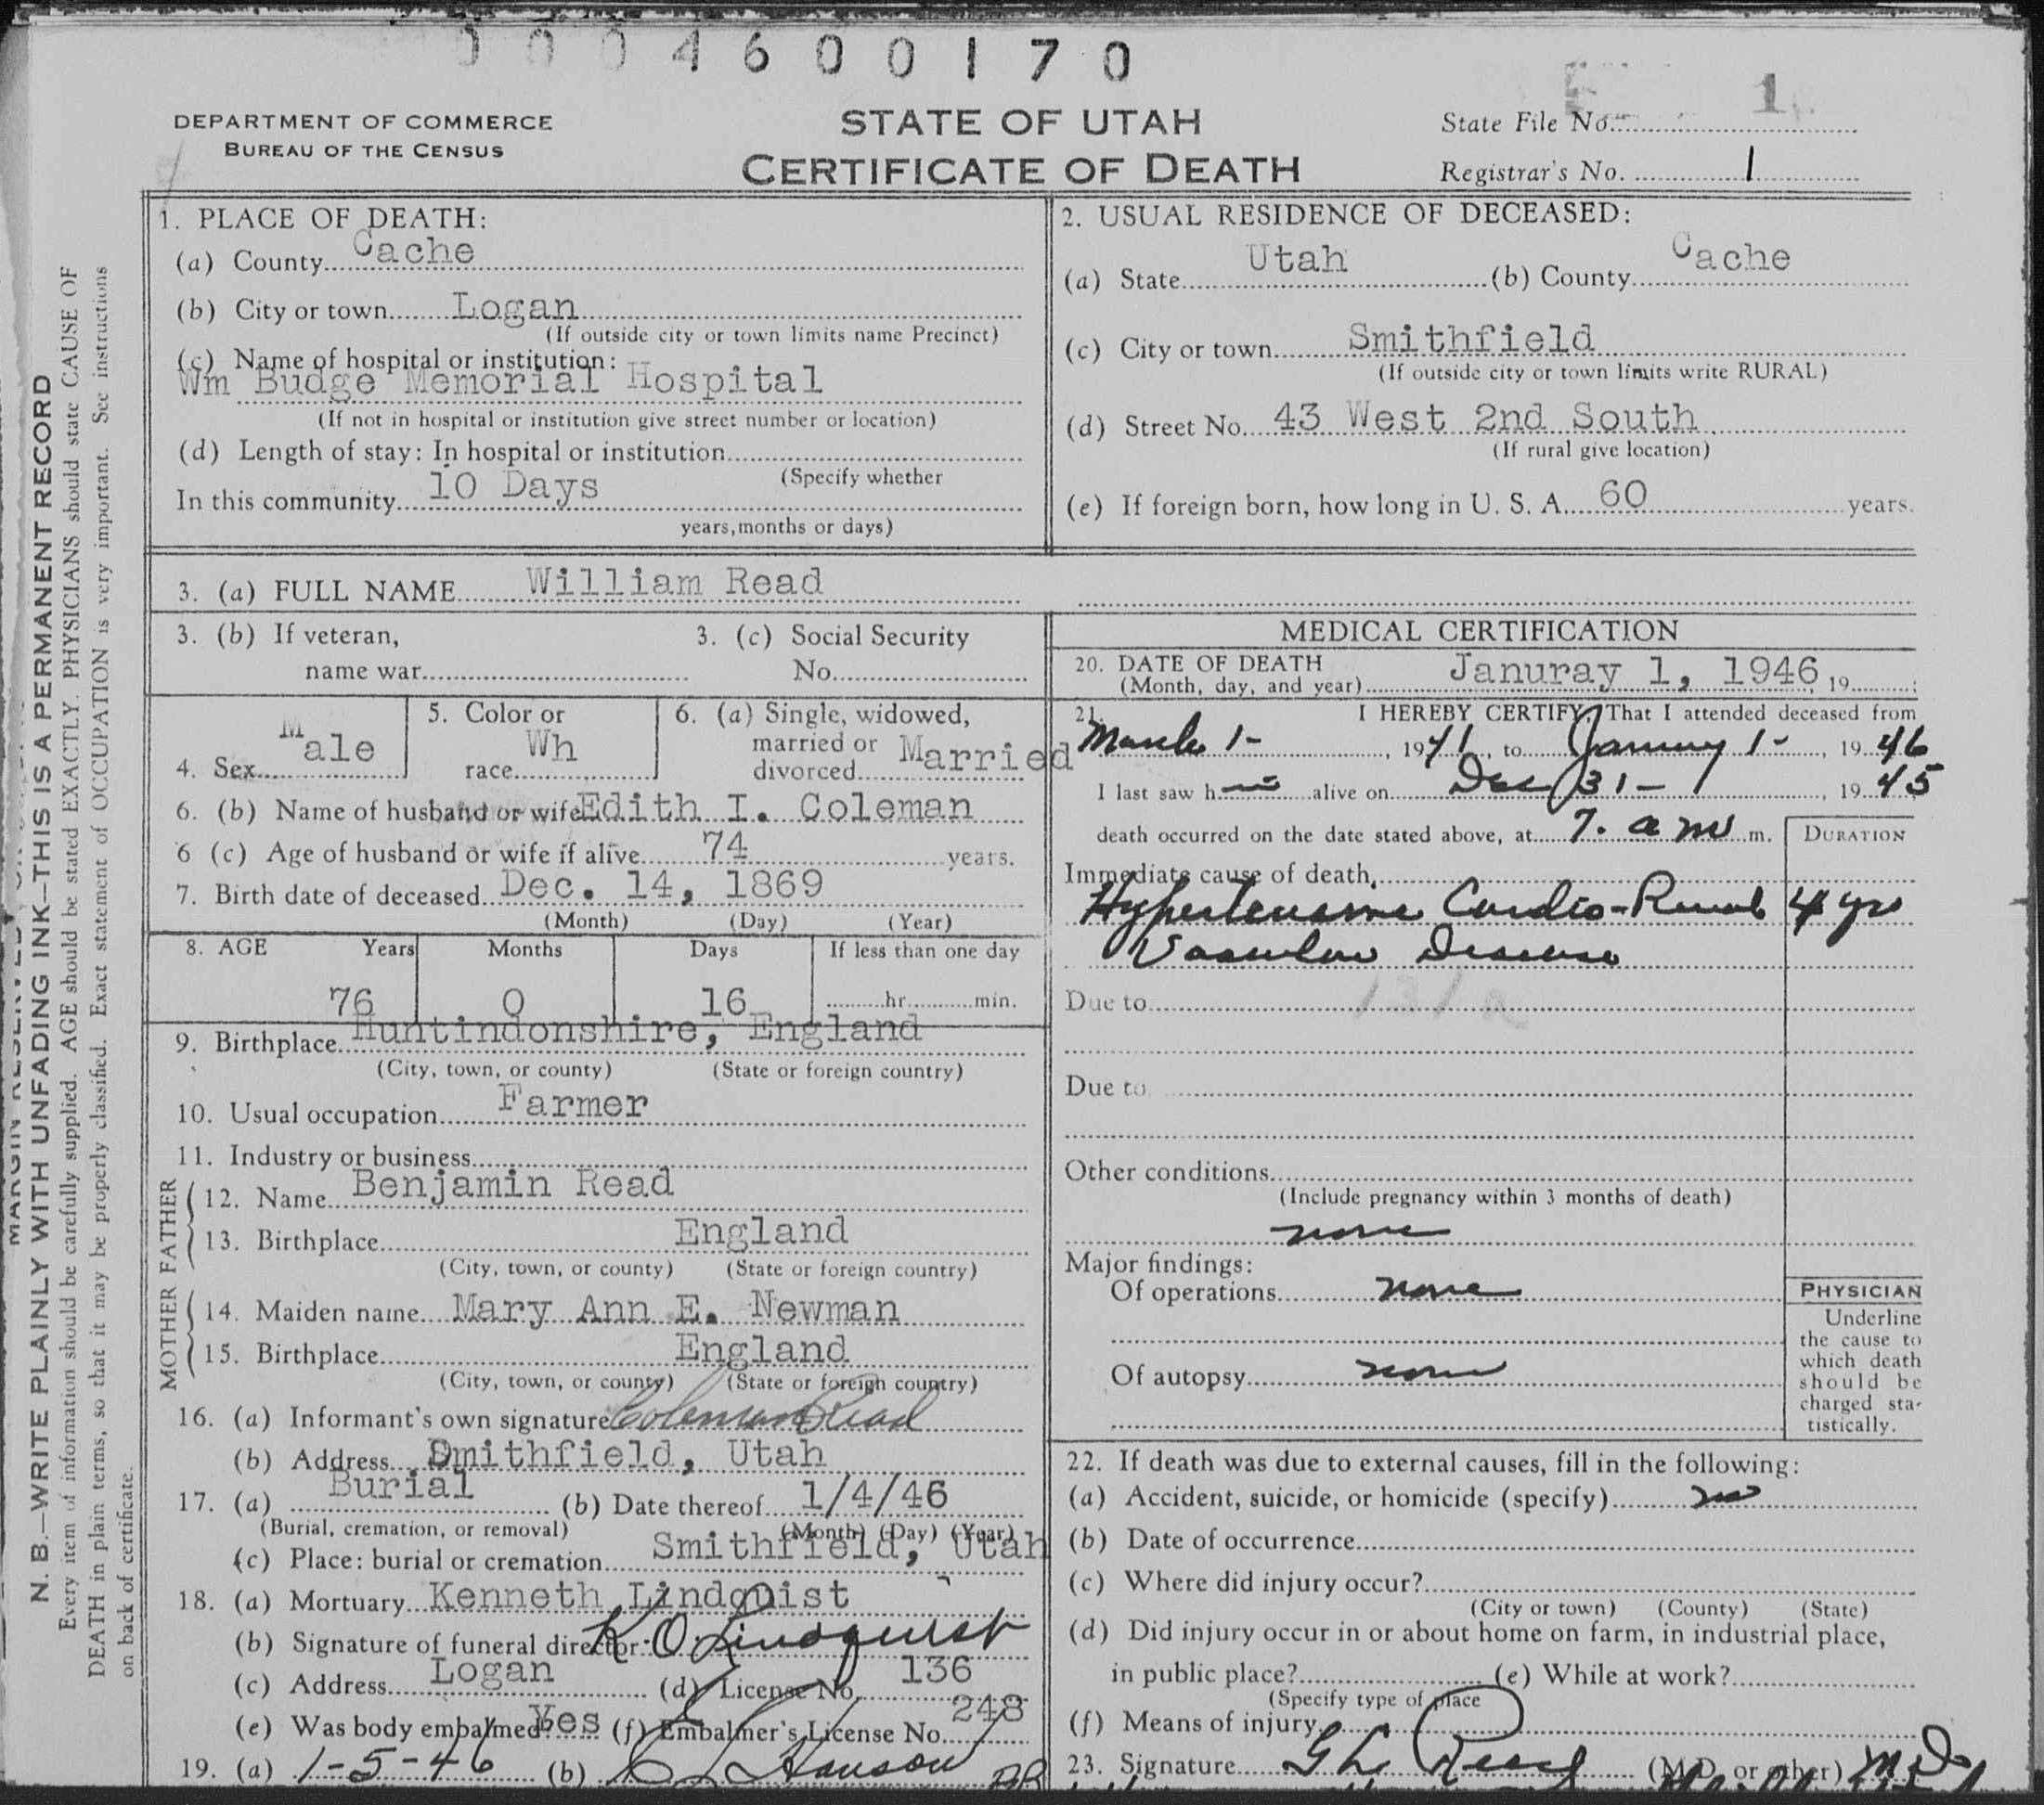 0004600170
DEPARTMENT OF COMMERCE
BUREAU OF THE CENSUS
STATE OF UTAH
CERTIFICATE OF DEATH
State File No. 1
Registrar's No. 1
1. PLACE OF DEATH:
(a) County Cache
(b) City or town Logan
(If outside city or town limits name Precinct)
(c) Name of hospital or institution:
Wm Budge Memorial Hospital
(If not in hospital or institution give street number or location)
(d) Length of stay: In hospital or institution
(Specify whether
In this community 10 Days
years, months or days)
2. USUAL RESIDENCE OF DECEASED:
(a) State Utah (b) County Cache
(c) City or town Smithfield
(If outside city or town limits write RURAL)
(d) Street No. 43 West 2nd South
(If rural give location)
(e) If foreign born, how long in U. S. A. 60 years.
3. (a) FULL NAME William Read
3. (b) If veteran,
name war
3. (c) Social Security
No.
4. Sex Male
5. Color or
race Wh
6. (a) Single, widowed,
married or
divorced Married
6. (b) Name of husband or wife Edith I. Coleman
6 (c) Age of husband or wife if alive 74 years.
7. Birth date of deceased Dec. 14, 1869
(Month) (Day) (Year)
8. AGE Years Months Days If less than one day
76 0 16 hr. min.
9. Birthplace Huntindonshire, England
(City, town, or county) (State or foreign country)
10. Usual occupation Farmer
11. Industry or business
FATHER
12. Name Benjamin Read
13. Birthplace England
(City, town, or county) (State or foreign country)
MOTHER
14. Maiden name Mary Ann E. Newman
15. Birthplace England
(City, town, or county) (State or foreign country)
16. (a) Informant's own signature Coleman Read
(b) Address Smithfield, Utah
17. (a) Burial (b) Date thereof 1/4/46
(Burial, cremation, or removal) (Month) (Day) (Year)
(c) Place: burial or cremation Smithfield, Utah
18. (a) Mortuary Kenneth Lindquist
(b) Signature of funeral director K O Lindquist
(c) Address Logan (d) License No. 136
(e) Was body embalmed? Yes (f) Embalmer's License No. 248
19. (a) 1-5-46 (b) Hanson
MEDICAL CERTIFICATION
20. DATE OF DEATH
(Month, day, and year) Januray 1, 1946, 19 ;
21. I HEREBY CERTIFY, That I attended deceased from
March 1-, 1941, to January 1-, 1946
I last saw h alive on Dec 31-, 1945
death occurred on the date stated above, at 7. a m m.
DURATION
Immediate cause of death
Hypertensive Cardio-Renal 4 yrs
Vascular Disease
Due to 131a
Due to
Other conditions
(Include pregnancy within 3 months of death)
none
Major findings:
Of operations none
Of autopsy none
PHYSICIAN
Underline
the cause to
which death
should be
charged sta-
tistically.
22. If death was due to external causes, fill in the following:
(a) Accident, suicide, or homicide (specify) no
(b) Date of occurrence
(c) Where did injury occur?
(City or town) (County) (State)
(d) Did injury occur in or about home on farm, in industrial place,
in public place? (e) While at work?
(Specify type of place
(f) Means of injury
23. Signature G L Rees (M.D. or other) M D
N. B.—WRITE PLAINLY WITH UNFADING INK—THIS IS A PERMANENT RECORD
Every item of information should be carefully supplied. AGE should be stated EXACTLY. PHYSICIANS should state CAUSE OF
DEATH in plain terms, so that it may be properly classified. Exact statement of OCCUPATION is very important. See instructions
on back of certificate.